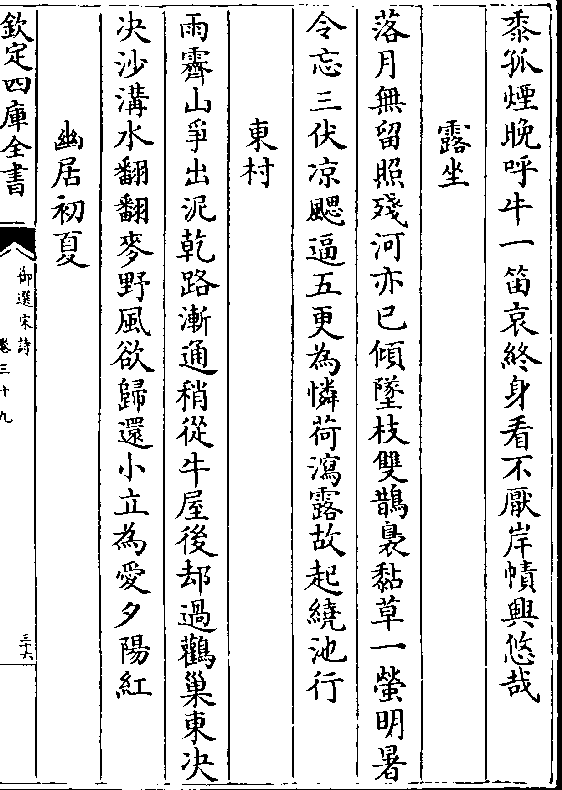 黍孤煙晚呼牛一笛哀終身看不厭岸幘興悠哉
露坐
落月無留照殘河亦已傾墜枝雙鵲褭黏草一螢明暑
令忘三伏凉颸逼五更為憐荷瀉露故起繞池行
東村
雨霽山爭出泥乾路漸通稍從牛屋後却過鸛巢東决
决沙溝水翻翻麥野風欲歸還小立為愛夕陽紅
幽居初夏
欽定四庫全書
御選宋詩
卷三十九
三十六